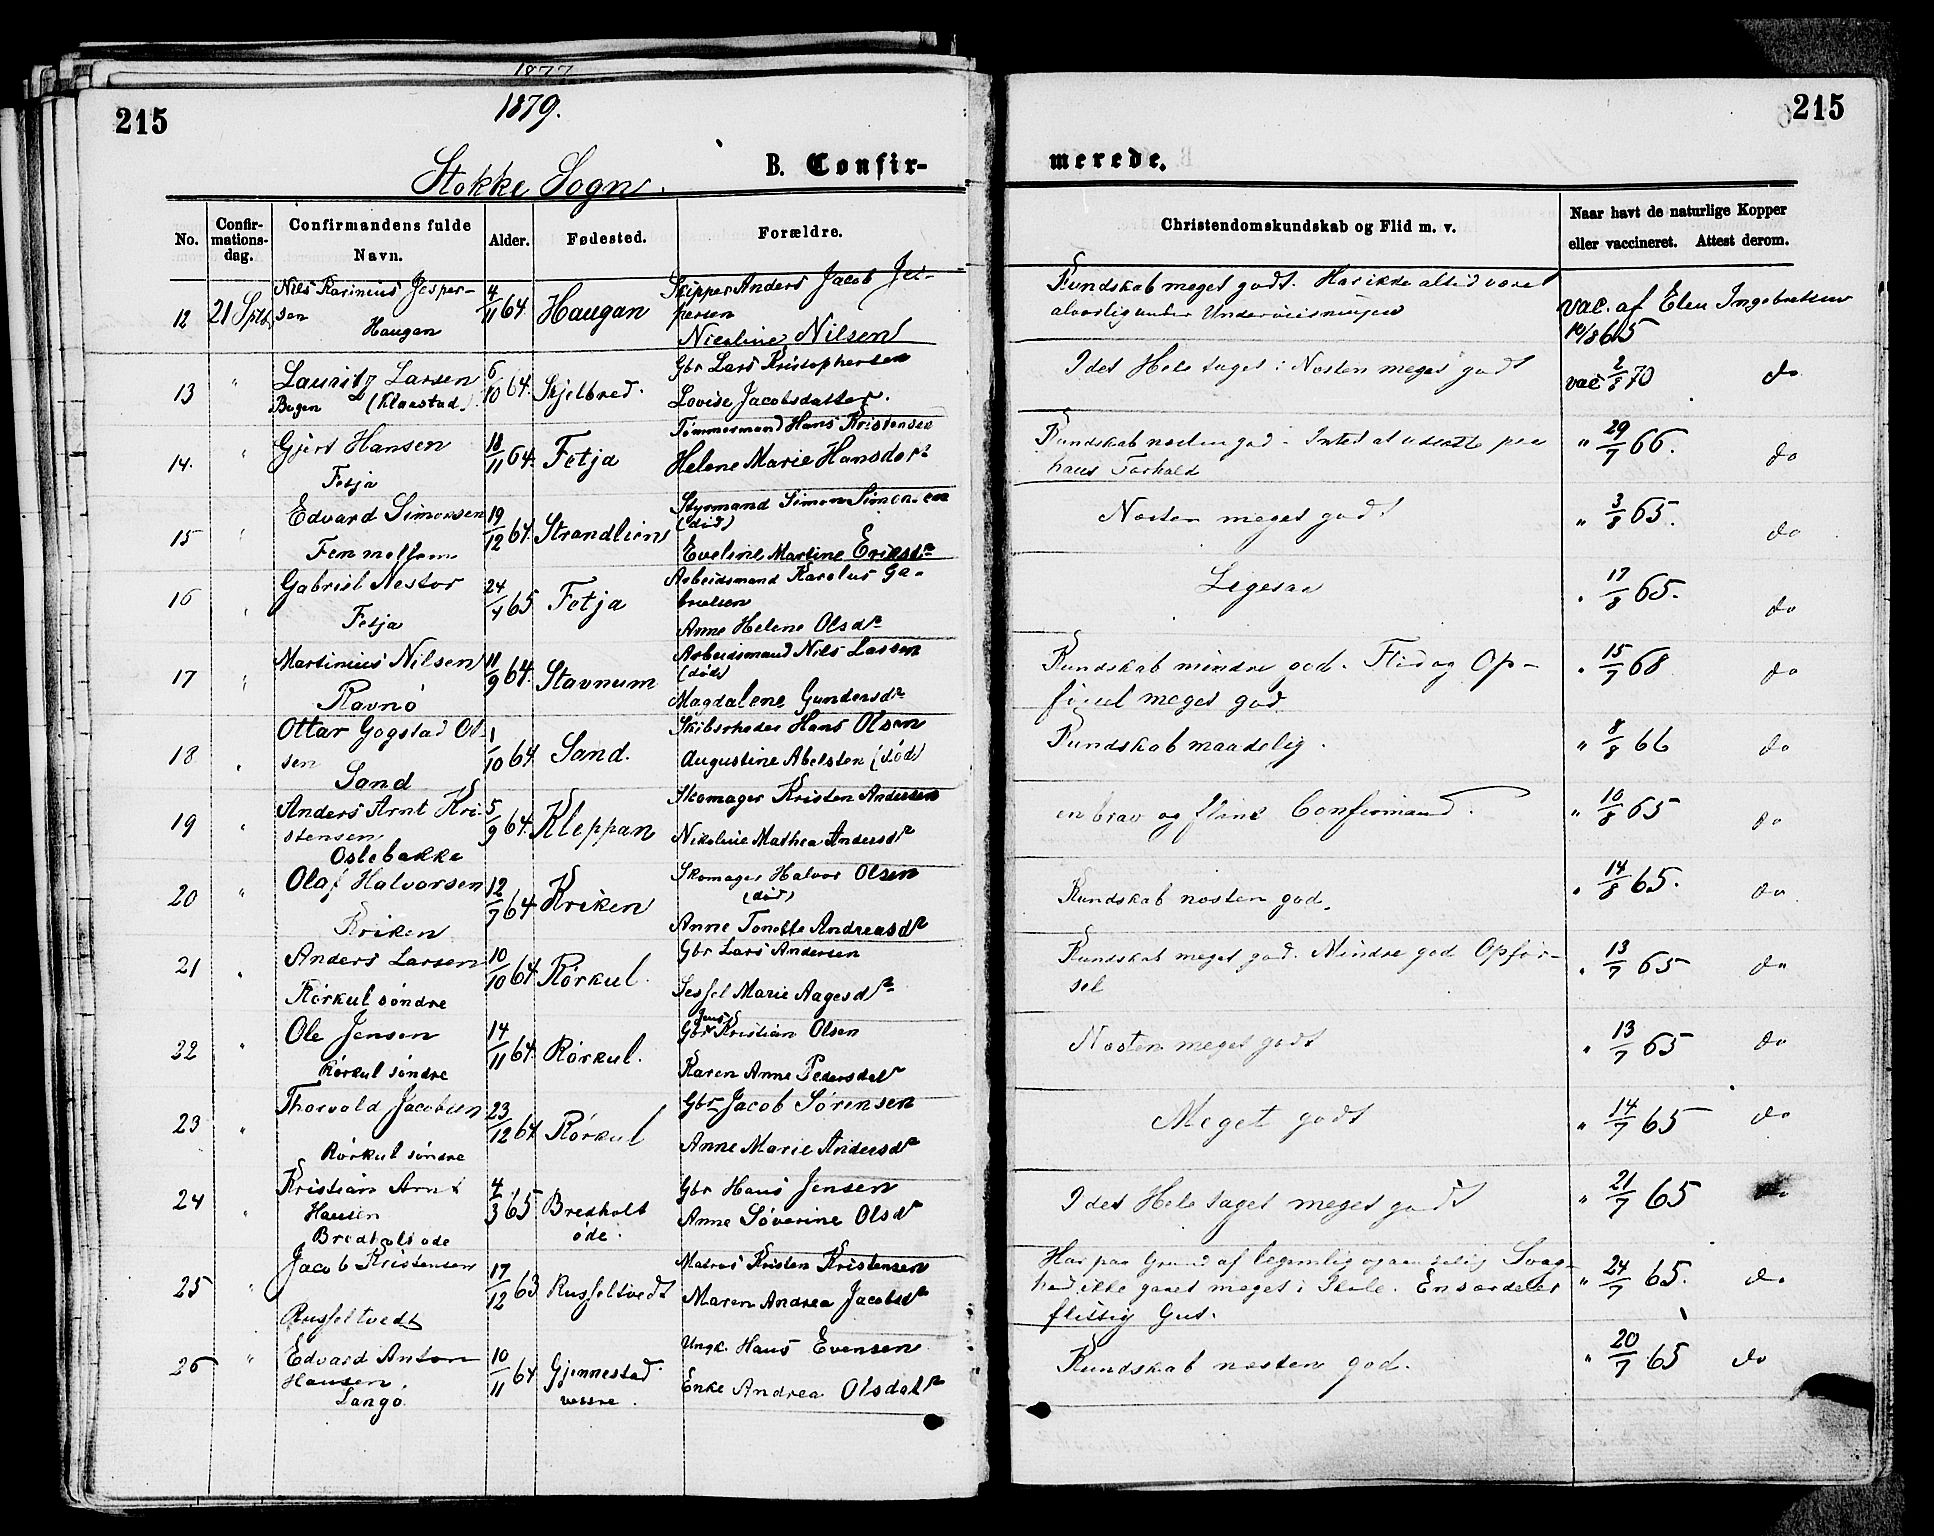 1877
215
1879.
215
Stokke Sogn.
B. Confir-
merede.
No.
Confir-
mations-
dag.
Confirmandens fulde
Navn.
Alder.
Fødested.
Forældre.
Christendomskundskab og Flid m. v.
Naar havt de naturlige Kopper
eller vaccineret. Attest derom.
12 21 Septb. Nils Karinius Jesper-
sen
Haugan
4/11 64. Haugan
Skipper Anders Jacob Jes-
persen
Nicoline Nilsen
Kundskab meget godt. Har ikke altid været
alvorlig under Underviisningen
vac. af Elen Ingebretsen
10/8 65
13 " Lauritz Larsen
Bogen (Klaastad)
6/10 64. Skjelbred.
Gbr Lars Kristophersen
Lovise Jacobsdatter.
I det Hele taget: Næsten meget godt
vac 2/8 70 do
14. " Gjert Hansen
Fetja
18/11 64. Fetja
Tømmermand Hans Kristensen
Helene Marie Hansdtr
Kundskab næsten god. Intet at udsætte paa
hans Forhold
" 29/7 66. do
15 " Edvard Simonsen
Fenmellem
19/12 64. Strandlien
Styrmand Simon Simonsen
(død)
Eveline Martine Eriksdr
Næsten meget godt
" 3/8 65. do
16 " Gabriel Nestor
Fetja
24/4 65 Fetja
Arbeidsmand Karolus Ga-
brielsen
Anne Helene Olsdr
Ligesaa
" 17/8 65. do
17 " Martinius Nilsen
Ravnø
11/9 64. Stavnum
Arbeidsmand Nils Larsen
(død)
Magdalene Gundersdr
Kundskab mindre god. Flid og Op-
førsel meget god
" 15/7 68 do
18 " Ottar Gogstad Ol-
sen
Sand
1/10 64. Sand.
Skibsrheder Hans Olsen
Augustine Abelsten (død)
Kundskab maadelig.
" 8/8 66 do
19 " Anders Arnt Kri-
stensen
Ostebakke
5/9 64. Kleppan
Skomager Kristen Andersen
Nikoline Mathea Andersdr
en brav og flink Confirmand.
" 10/8 65 do
20 " Olaf Halvorsen
Kriken
12/7 64. Kriken
Skomager Halvor Olsen
(død)
Anne Tonette Andreasdr
Kundskab næsten god.
" 14/8 65. do
21 " Anders Larsen
Rørkul søndre
10/10 64. Rørkul.
Gbr Lars Andersen
Sessel Marie Aagesdr
Kundskab meget god. Mindre god Opfør-
sel
" 13/7 65 do
22 " Ole Jensen
Rørkul søndre
14/11 64. Rørkul.
Jens
Gbr Kristian Olsen
Karen Anne Pedersdatr
Næsten meget godt
" 13/7 65 do
23 " Thorvald Jacobsen
Rørkul søndre
23/12 64. Rørkul
Gbr Jacob Sørensen
Anne Marie Andersdr
Meget godt
" 14/7 65 do
24 " Kristian Arnt
Hansen
Bredholt øde
4/3 65 Bredholt
øde.
Gbr Hans Jensen
Anne Søverine Olsdr
I det Hele taget meget godt
" 21/7 65 do
25 " Jacob Kristensen
Russeltvedt
17/12 63 Russeltvedt
Matros Kristen Kristensen
Maren Andrea Jacobsdr
Har paa Grund af legemlig og aandelig Svag-
hed ikke gaaet meget i Skole. En særdeles
flittig Gut.
" 24/7 65. do
26 " Edvard Anton
Hansen
Langø.
10/11 64 Gjennestad
vestre.
Ungk. Hans Evensen
Enke Andrea Olsdatr
Kundskab næsten god.
" 20/7 65 do